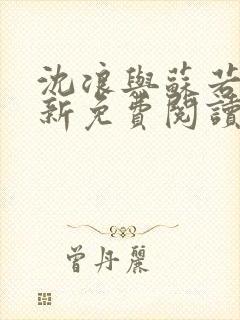 沈浪與蘇若
新免費閱讀
曾丹麗